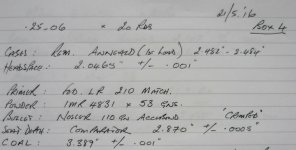 21/5/16
.25-06 * 20 Rds Box 4
Cases: Rem. Annealed (1x Load) 2.482" - 2.484"
Headspace: 2.0465" +/- .001"
Primer: Fed. LR 210 Match.
Powder: IMR 4831 * 53 gns.
Bullet: Nosler 110 gn Accubond "Crimped"
Seat Depth: Comparator 2.870" +/- .0005"
COAL: 3.389" +/- .001"